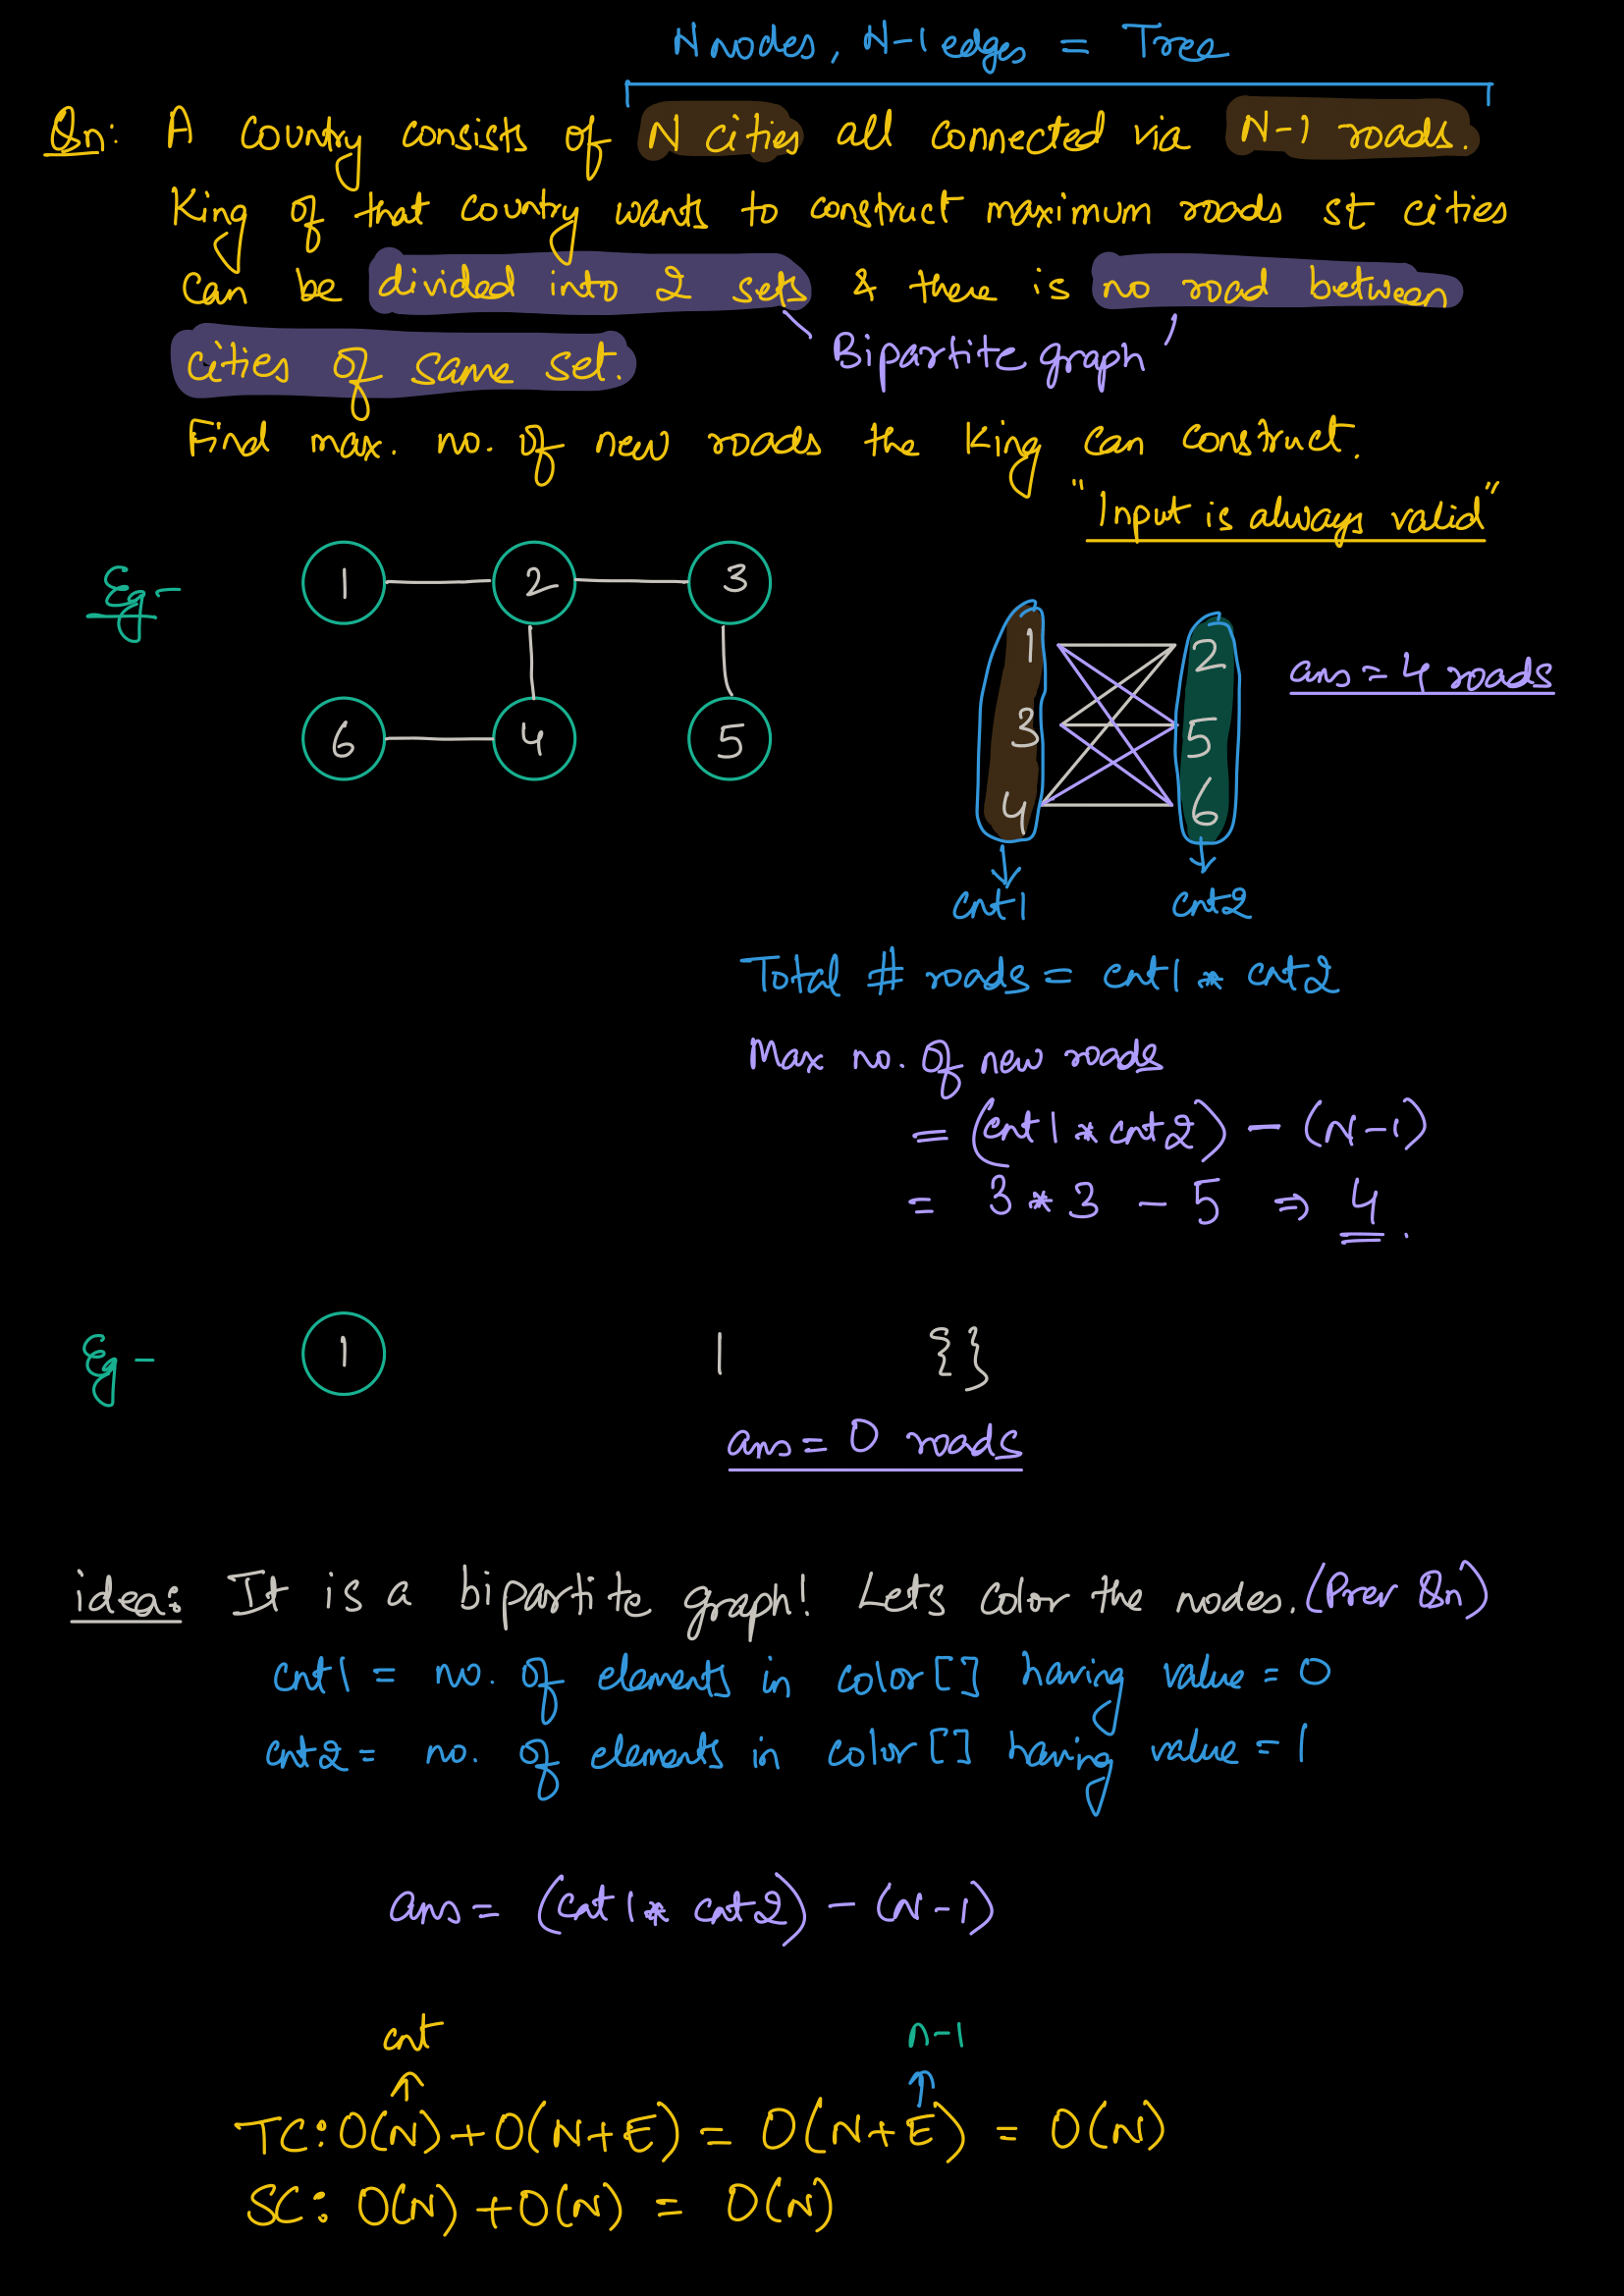 N nodes, N-1 edges = Tree
Qn: A country consists of N cities all connected via N-1 roads.
King of that country wants to construct maximum roads st cities
can be divided into 2 sets & there is no road between
cities of same set.
Bipartite graph
Find max. no. of new roads the King can construct.
"Input is always valid"
Eg-
1 2 3
6 4 5
1 2
3 5
4 6
ans = 4 roads
cnt1 cnt2
Total # roads = cnt1 * cnt2
Max no. of new roads
= (cnt1 * cnt2) - (N-1)
= 3 * 3 - 5 ⇒ 4.
Eg - 1 1 {}
ans = 0 roads
idea: It is a bipartite graph! Lets color the nodes. (Prev Qn)
cnt1 = no. of elements in color[] having value = 0
cnt2 = no. of elements in color[] having value = 1
ans = (cnt1 * cnt2) - (N-1)
cnt n-1
TC: O(N) + O(N+E) = O(N+E) = O(N)
SC: O(N) + O(N) = O(N)